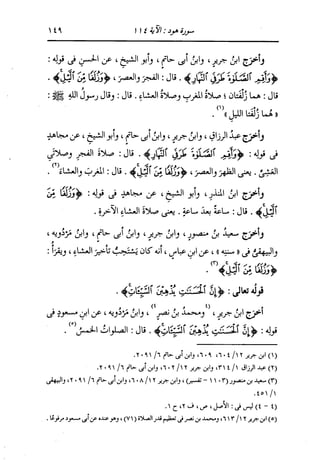 سورة هود : الآية ١١٤
١٤٩
وأخرج ابنُ جريرٍ، وابنُ أبى حاتمٍ، وأبو الشيخِ، عن الحسنِ فى قوله :
﴿وَأَقِمِ ٱلصَّلَوٰةَ طَرَفَىِ ٱلنَّهَارِ﴾ . قال : الفجرَ والعصرَ، ﴿وَزُلَفًا مِّنَ ٱلَّيْلِ﴾ .
قال : هما زُلْفتان ؛ صلاةُ المغربِ وصلاةُ العشاءِ. قال : وقال رسولُ اللهِ ﷺ :
«هُما زُلْفَتا الليلِ»(١).
وأخرَج عبدُ الرزاقِ، وابنُ جريرٍ، وابنُ أبى حاتمٍ، وأبو الشيخِ، عن مجاهدٍ
فى قوله : ﴿وَأَقِمِ ٱلصَّلَوٰةَ طَرَفَىِ ٱلنَّهَارِ﴾ . قال : صلاةُ الفجرِ وصلاتَىِ
العَشِىِّ . يعنى الظهرَ والعصرَ، ﴿وَزُلَفًا مِّنَ ٱلَّيْلِ﴾ . قال : المغربَ والعشاءَ(٢).
وأخرَج ابنُ المنذرِ، وأبو الشيخِ، عن مجاهدٍ فى قوله : ﴿وَزُلَفًا مِّنَ
ٱلَّيْلِ﴾ . قال : ساعةً بعدَ ساعةٍ . يعنى صلاةَ العشاءِ الآخرةِ .
وأخرَج سعيدُ بنُ منصورٍ، وابنُ جريرٍ، وابنُ أبى حاتمٍ، وابنُ مَرْدُويَه،
والبيهقىُّ فى «سننِه»، عن ابنِ عباسٍ، أنه كان يَسْتَحِبُّ تأخيرَ العشاءِ، ويقرأُ :
﴿وَزُلَفًا مِّنَ ٱلَّيْلِ﴾(٣).
قولُه تعالى : ﴿إِنَّ ٱلْحَسَنَٰتِ يُذْهِبْنَ ٱلسَّيِّـَٔاتِ﴾ .
أخرَج ابنُ جريرٍ، (٤ومحمدُ بنُ نصرٍ٤)، وابنُ مَرْدُويَه، عن ابنِ مسعودٍ فى
قوله : ﴿إِنَّ ٱلْحَسَنَٰتِ يُذْهِبْنَ ٱلسَّيِّـَٔاتِ﴾ . قال : الصلواتُ الخمسُ(٥).
(١) ابن جرير ١٢/ ٦٠٤، ٦٠٩، وابن أبى حاتم ٦/ ٢٠٩١.
(٢) عبد الرزاق ١/ ٣١٤، وابن جرير ١٢/ ٦٠٢، وابن أبى حاتم ٦/ ٢٠٩١.
(٣) سعيد بن منصور (١١٠٣ - تفسير)، وابن جرير ١٢/ ٦٠٨، وابن أبى حاتم ٦/ ٢٠٩١، والبيهقى
١/ ٤٥١.
(٤ - ٤) ليس فى : الأصل، ص، ف ٢، ح ١.
(٥) ابن جرير ١٢/ ٦١٣، ومحمد بن نصر فى تعظيم قدر الصلاة (٧١)، وهو عنده عن أبى مسعود مرفوعًا.